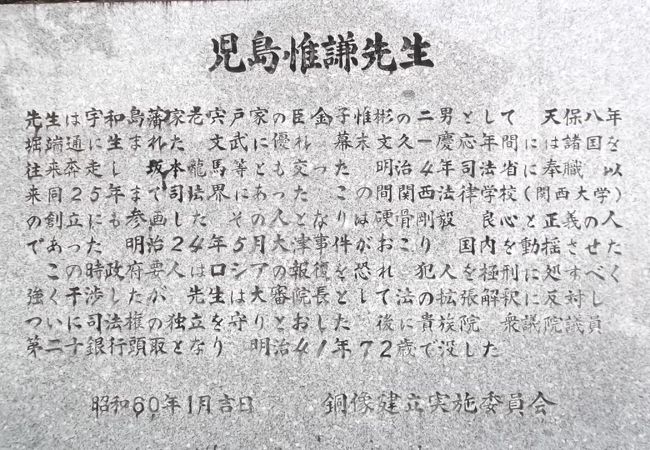 児島惟謙先生
先生は宇和島藩家老宍戸家の臣金子惟彬の二男として 天保八年
堀端通に生まれた 文武に優れ 幕末文久一慶応年間には諸国を
往来奔走し 坂本龍馬等とも交った 明治4年司法省に奉職 以
来同25年まで司法界にあった この間関西法律学校(関西大学)
の創立にも参画した その人となりは硬骨剛毅 良心と正義の人
であった 明治24年5月大津事件がおこり 国内を動揺させた
この時政府要人はロシアの報復を恐れ 犯人を極刑に処すべく
強く干渉したが 先生は大審院長として法の拡張解釈に反対し
ついに司法権の独立を守りとおした 後に貴族院 衆議院議員
第二十銀行頭取となり 明治41年72歳で没した
昭和60年1月吉日 銅像建立実施委員会